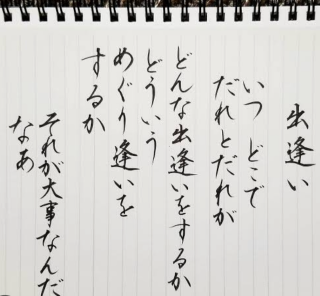 出逢い
いつ どこで
だれとだれが
どんな出逢いをするか
どういう
めぐり逢いを
するか
それが大事なんだ
なあ